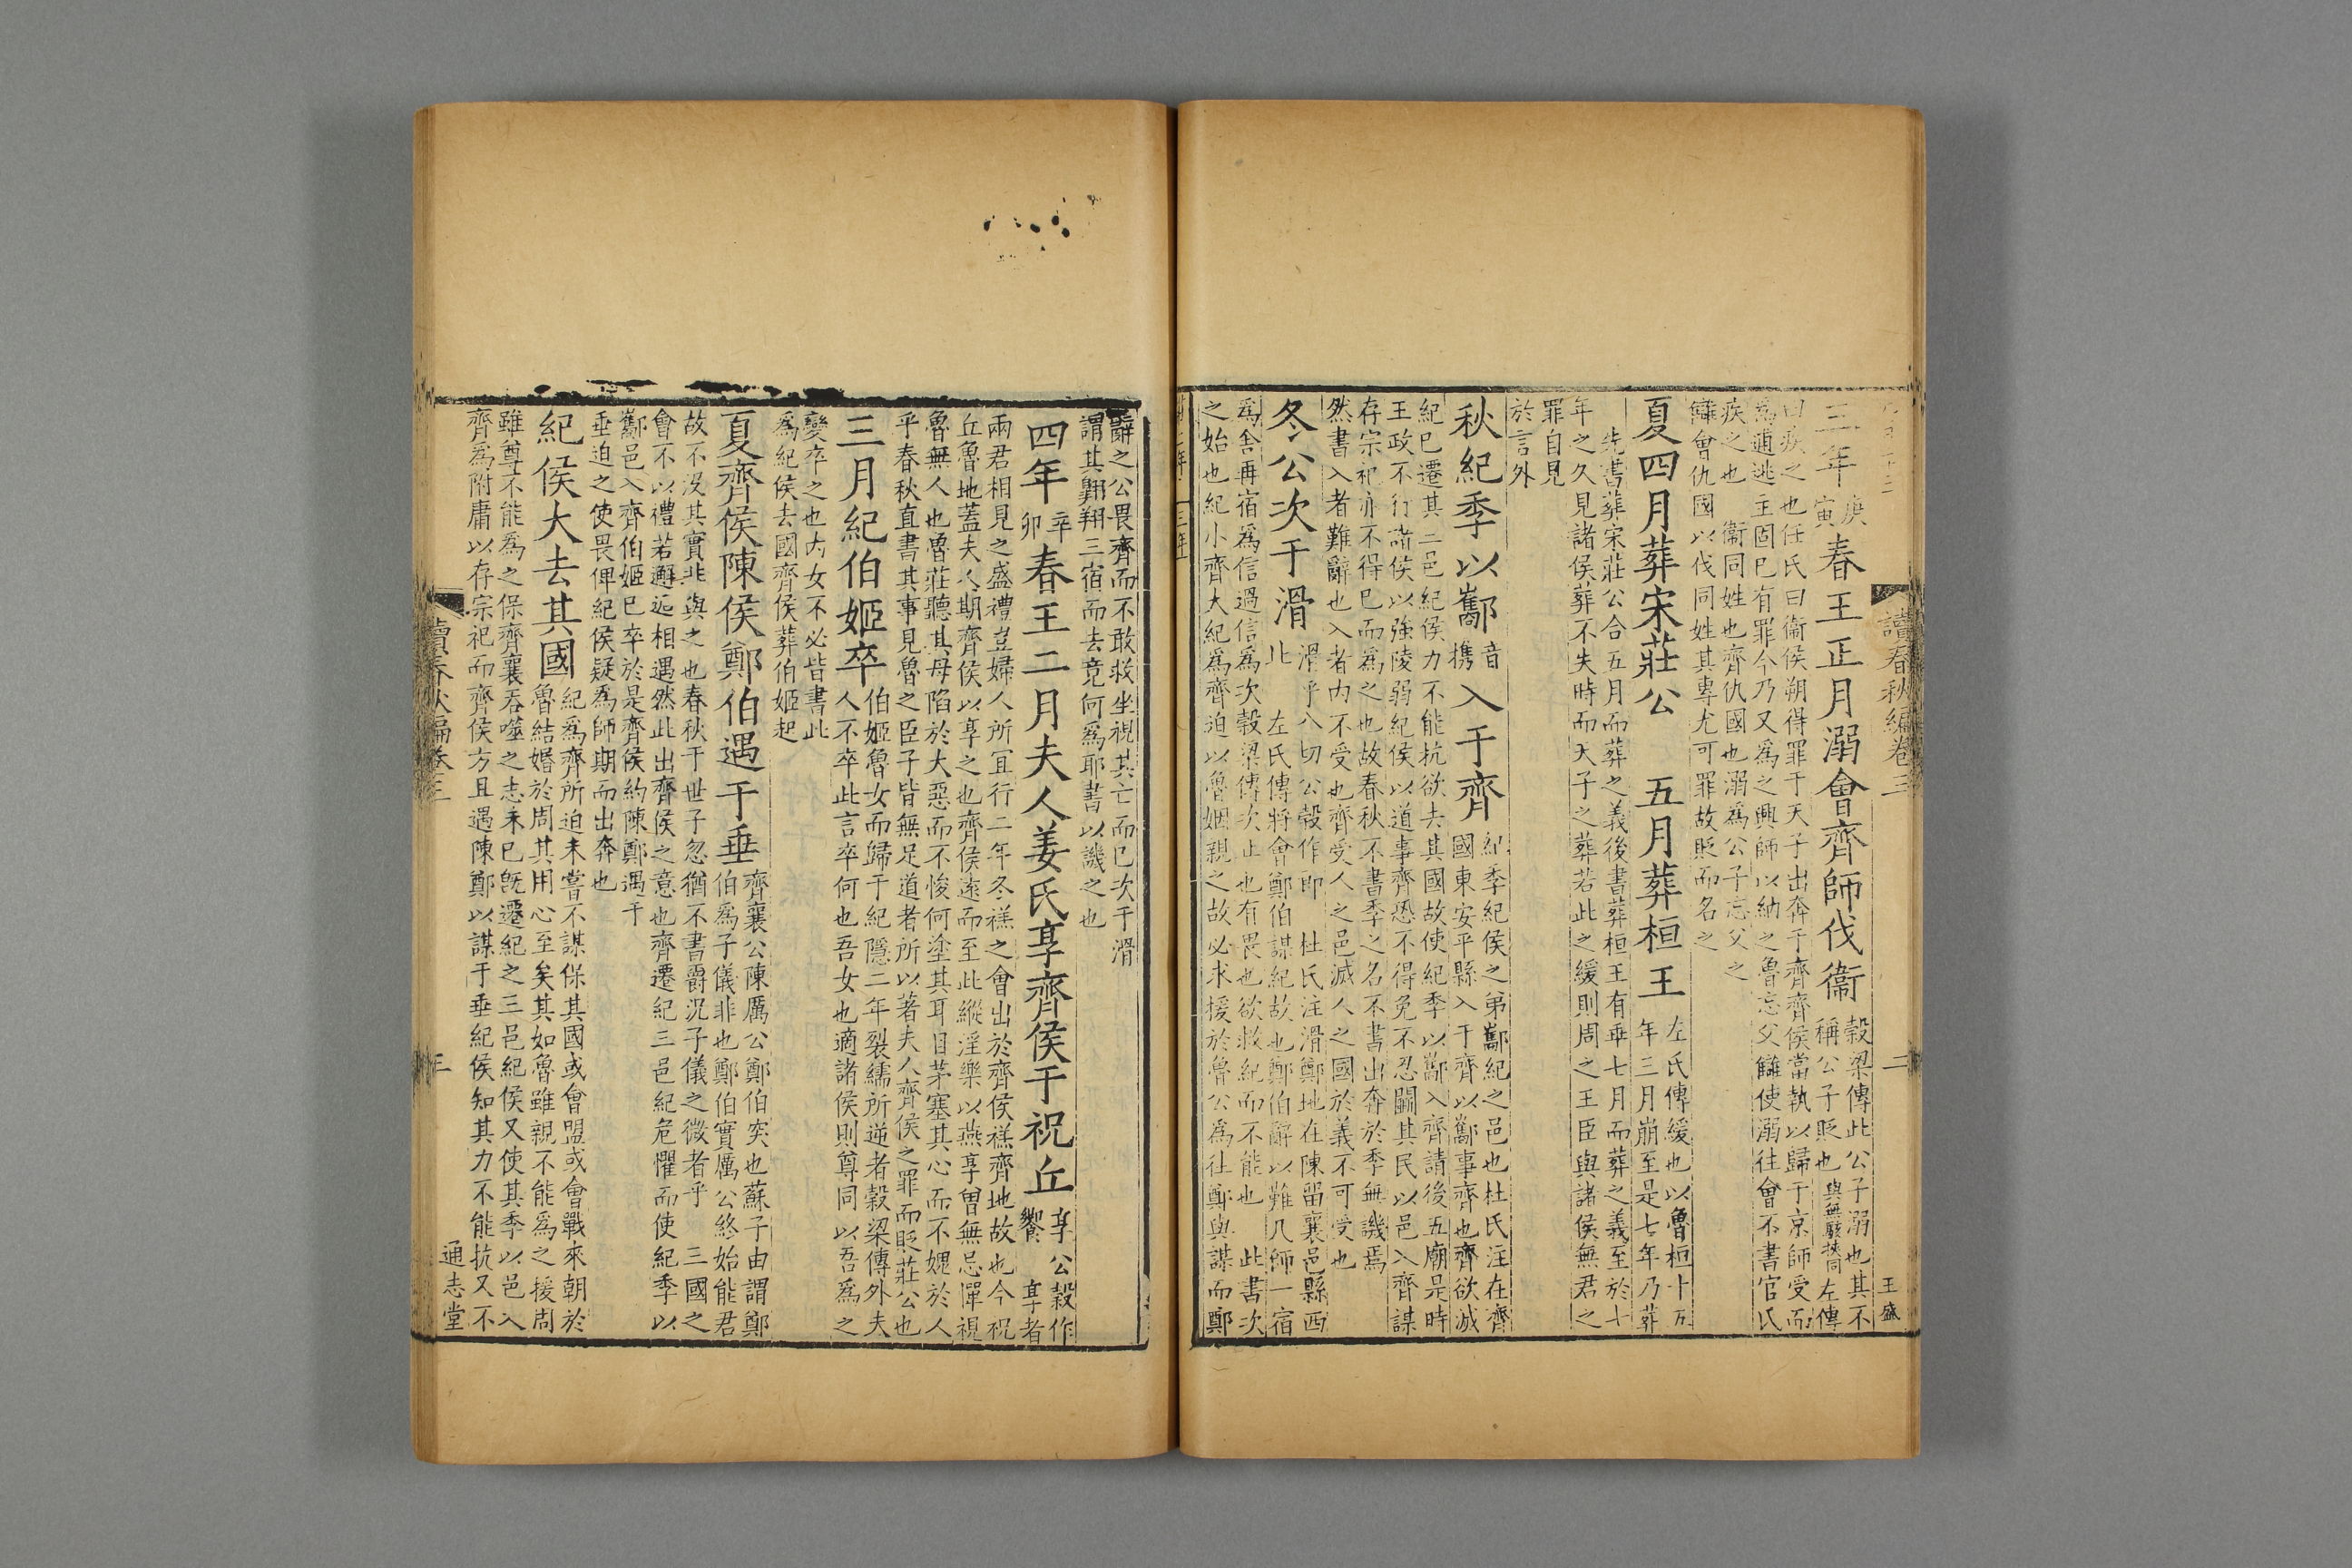 讀春秋編卷三 二 王盛
三年庚寅春王正月溺會齊師伐衞穀梁傳此公子溺也其不
稱公子貶也與無駭挾同左傳
曰疾之也任氏曰衞侯朔得罪于天子出奔于齊齊侯當執以歸于京師受而
為逋逃主固已有罪今乃又為之興師以納之魯忘父讎使溺往會不書官氏
疾之也 衞同姓也齊仇國也溺為公子忘父之
讎會仇國以伐同姓其專尤可罪故貶而名之
夏四月葬宋莊公 五月葬桓王左氏傳緩也以魯桓十五
年三月崩至是七年乃葬
先書葬宋莊公合五月而葬之義後書葬桓王有乖七月而葬之義至於七
年之久見諸侯葬不失時而天子之葬若此之緩則周之王臣與諸侯無君之
罪自見
於言外
秋紀季以酅音携入于齊紀季紀侯之弟酅紀之邑也杜氏注在齊
國東安平縣入于齊以酅事齊也齊欲滅
紀已遷其二邑紀侯力不能抗欲去其國故使紀季以酅入齊請後五廟是時
王政不行諸侯以強陵弱紀侯以道事齊恐不得免不忍鬬其民以邑入齊謀
存宗祀亦不得已而為之也故春秋不書季之名不書出奔於季無譏焉
然書入者難辭也入者内不受也齊受人之邑滅人之國於義不可受也
冬公次于滑滑乎八切公穀作郎 杜氏注滑鄭地在陳留襄邑縣西
北 左氏傳將會鄭伯謀紀故也鄭伯辭以難凡師一宿
為舍再宿為信過信為次穀梁傳次止也有畏也欲救紀而不能也 此書次
之始也紀小齊大紀為齊迫以魯姻親之故必求援於魯公為往鄭與謀而鄭
辭之公畏齊而不敢救坐視其亡而已次于滑
謂其翺翔三宿而去竟何為耶書以譏之也
四年辛卯春王二月夫人姜氏享齊侯于祝丘享公穀作
饗 享者
兩君相見之盛禮豈婦人所宜行二年冬禚之會出於齊侯禚齊地故也今祝
丘魯地蓋夫人期齊侯以享之也齊侯遠而至此縱淫樂以燕享曾無忌憚視
魯無人也魯莊聽其母陷於大惡而不悛何塗其耳目茅塞其心而不媿於人
乎春秋直書其事見魯之臣子皆無足道者所以著夫人齊侯之罪而貶莊公也
三月紀伯姬卒伯姬魯女而歸于紀隱二年裂繻所逆者穀梁傳外夫
人不卒此言卒何也吾女也適諸侯則尊同以吾為之
變卒之也内女不必皆書此
為紀侯去國齊侯葬伯姬起
夏齊侯陳侯鄭伯遇于垂齊襄公陳厲公鄭伯突也蘇子由謂鄭
伯為子儀非也鄭伯實厲公終始能君
故不没其實非與之也春秋于世子忽猶不書爵況子儀之微者乎 三國之
會不以禮若邂逅相遇然此出齊侯之意也齊遷紀三邑紀危懼而使紀季以
酅邑入齊伯姬已卒於是齊侯約陳鄭遇于
垂迫之使畏俾紀侯疑為師期而出奔也
紀侯大去其國紀為齊所迫未嘗不謀保其國或會盟或會戰來朝於
魯結婚於周其用心至矣其如魯雖親不能為之援周
雖尊不能為之保齊襄吞噬之志未已旣遷紀之三邑紀侯又使其季以邑入
齊為附庸以存宗祀而齊侯方且遇陳鄭以謀于垂紀侯知其力不能抗又不
讀春秋編卷三 三 通志堂